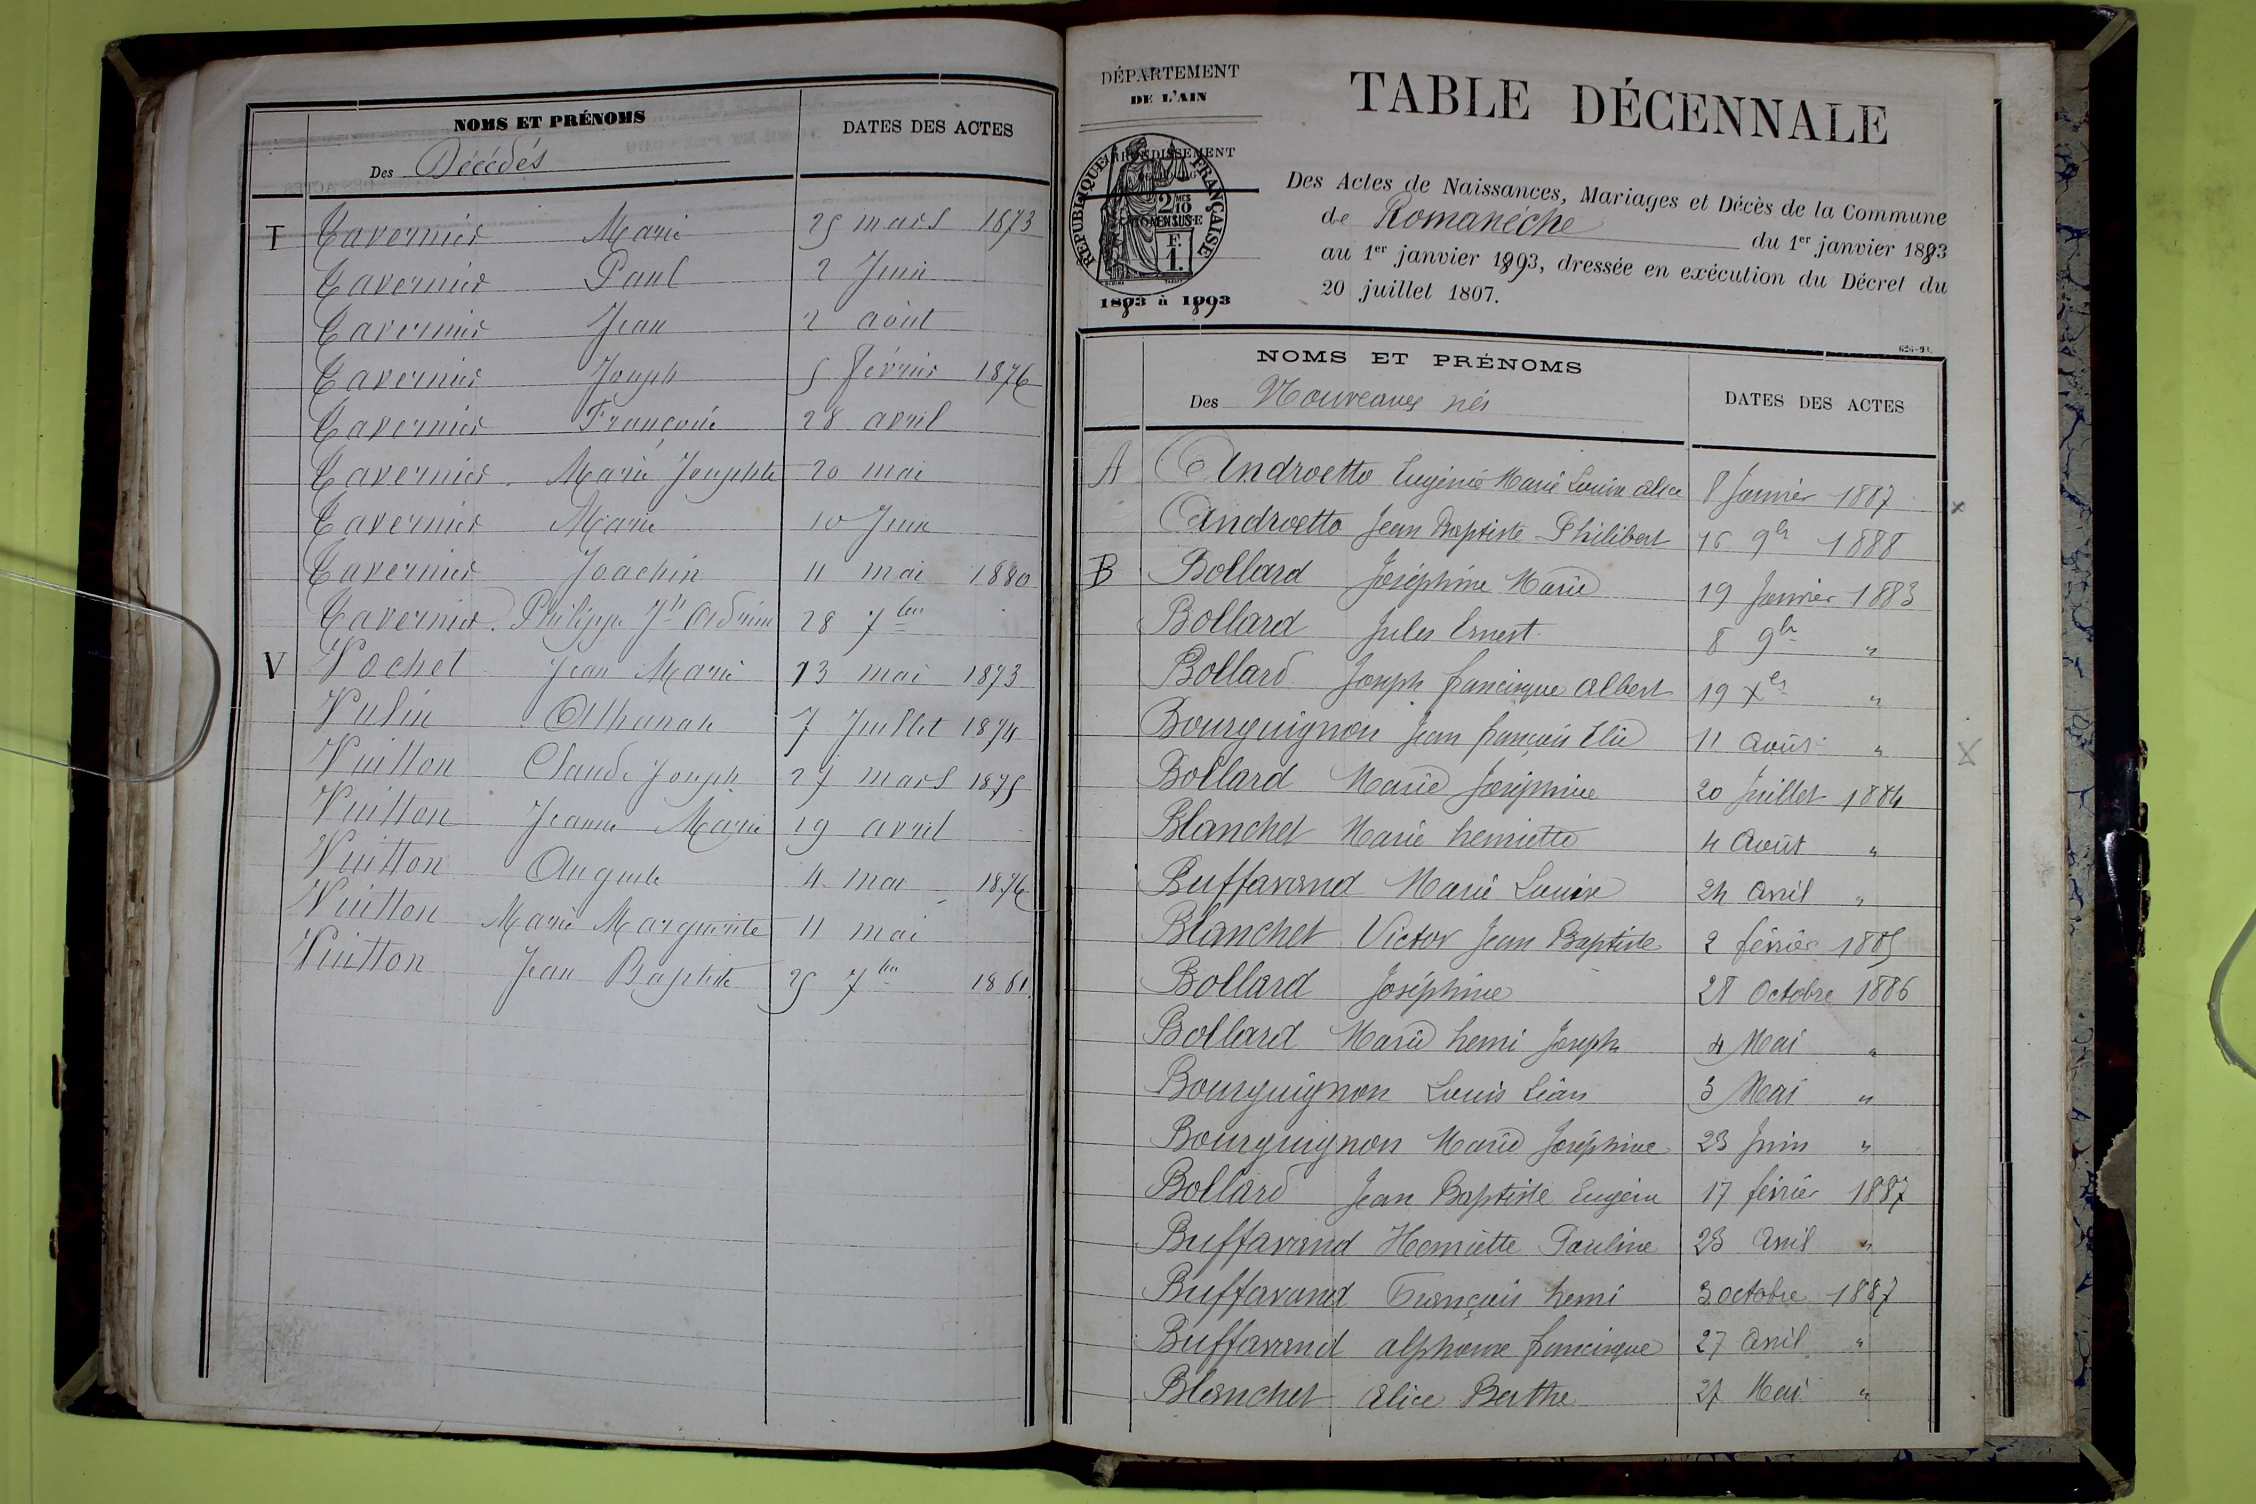 NOMS ET PRÉNOMS
DATES DES ACTES
Des Décédés
T Tavernier Marie 25 mars 1873
Tavernier Paul 2 Juin
Tavernier Jean 2 août
Tavernier Joseph 5 février 1876
Tavernier Françoise 28 avril
Tavernier Marie Josephte 20 mai
Tavernier Marie 10 Juin
Tavernier Joachin 11 mai 1880
Tavernier Philippe Jh 28 7bre
V Vochet Jean Marie 13 mai 1873
Vulin Athanase 7 Juillet 1874
Vuitton Claude Joseph 27 mars 1875
Vuitton Jeanne Marie 19 avril
Vuitton Auguste 4 mai 1876
Vuitton Marie Marguerite 11 mai
Vuitton Jean Baptiste 25 7bre 1881
DÉPARTEMENT
DE L'AIN
ARRONDISSEMENT
RÉPUBLIQUE FRANÇAISE
1883 à 1893
TABLE DÉCENNALE
Des Actes de Naissances, Mariages et Décès de la Commune
de Romanèche du 1er janvier 1883
au 1er janvier 1893, dressée en exécution du Décret du
20 juillet 1807.
NOMS ET PRÉNOMS
DATES DES ACTES
Des Nouveaux nés
A Androetto Eugénie Marie Louise alice 8 Janvier 1887
Androetto Jean Baptiste Philibert 16 9br 1888
B Bollard Joséphine Marie 19 Janvier 1883
Bollard Jules Ernest 8 9br "
Bollard Joseph francisque albert 19 Xbr "
Bourguignon Jean françois Elie 11 Août "
Bollard Marie Joséphine 20 Juillet 1884
Blanchet Marie henriette 4 Août "
Buffavand Marie Louise 24 avril "
Blanchet Victor Jean Baptiste 2 février 1885
Bollard Joséphine 28 Octobre 1886
Bollard Marie henri Joseph 4 Mai "
Bourguignon Louis Léon 3 Mai "
Bourguignon Marie Joséphine 23 Juin "
Bollard Jean Baptiste Eugène 17 février 1887
Buffavand Henriette Pauline 23 avril "
Buffavand François henri 3 octobre 1887
Buffavand alphonse francisque 27 avril "
Blanchet alice Berthe 27 Mai "